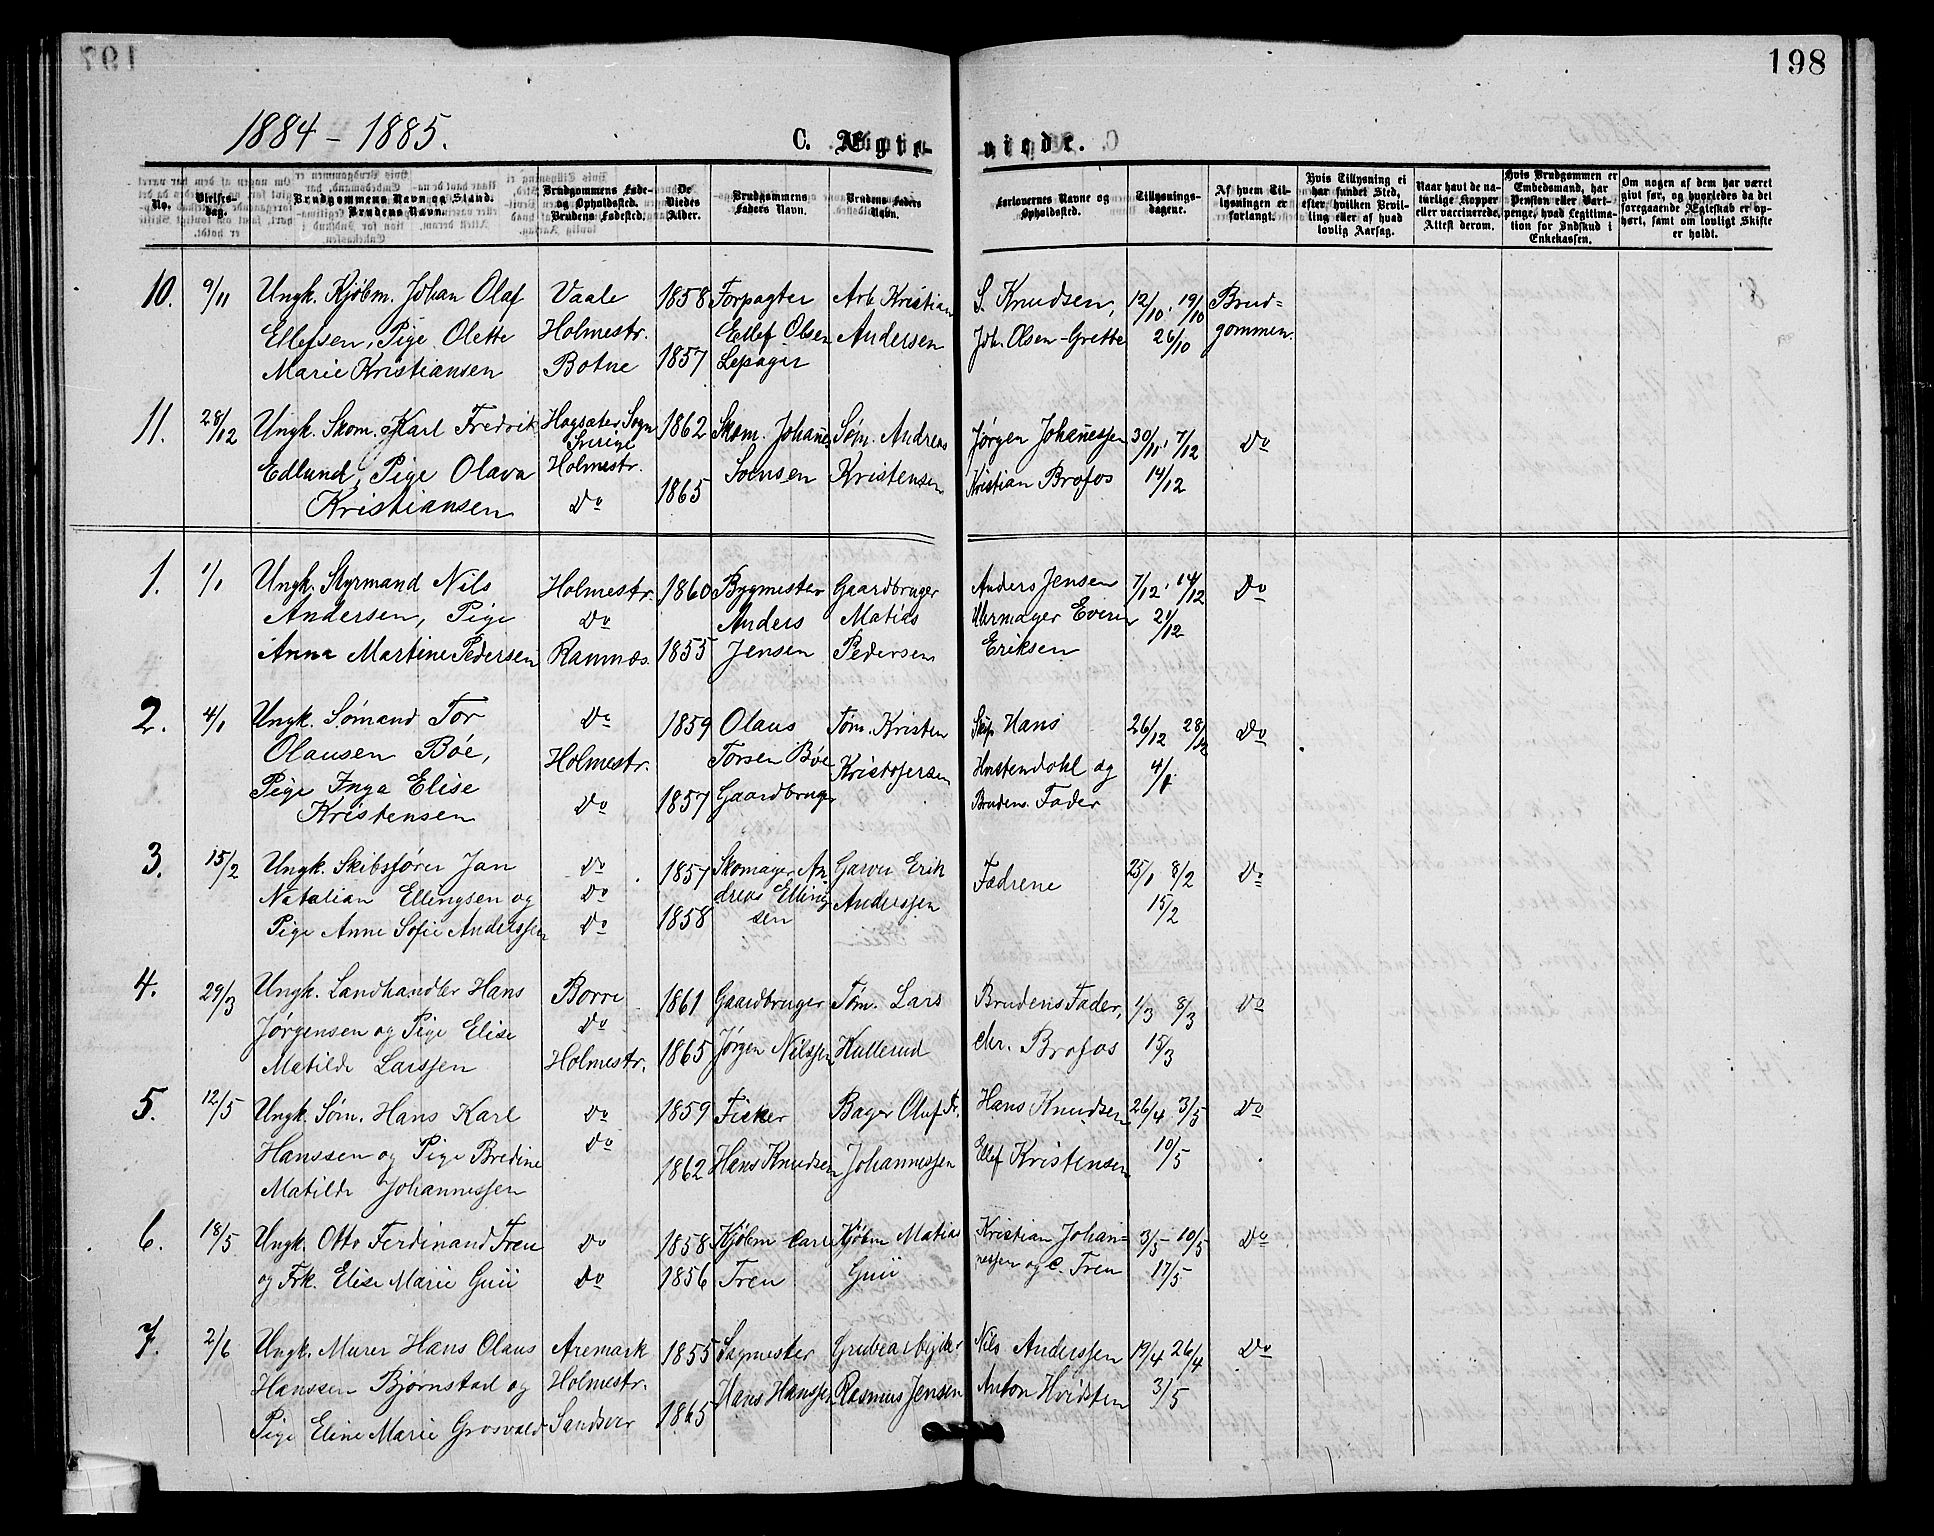 197
198
1884 – 1885.
C. Ægte-
viede.
No.
Vielses-
dag.
Brudgommens Navn og Stand.
Brudens Navn.
Brudgommens Føde-
og Opholdssted.
Brudens Fødested.
De
Viedes
Alder.
Brudgommens
Faders Navn.
Brudens Faders
Navn.
Forlovernes Navne og
Opholdssted.
Tillysnings-
dagene.
Af hvem Til-
lysningen er
forlangt.
Hvis Tillysning ei
har fundet Sted,
efter hvilken Bevil-
ling eller af hvad
lovlig Aarsag.
Naar havt de na-
turlige Kopper
eller vaccinerede,
Attest derom.
Hvis Brudgommen er
Embedsmand, har
Pension eller Vart-
penge, hvad Legitima-
tion for Indskud i
Enkekassen.
Om nogen af dem har været
gift før, og hvorledes da det
foregaaende Ægteskab er op-
hørt, samt om lovligt Skifte
er holdt.
10. 9/11 Ungk. Kjøbm. Johan Olaf Vaale 1858 Forpagter Arb. Kristian S. Knudsen, 12/10, 19/10 Brud-
Ellefsen, Pige Olette Holmestr. Ellef Olsen Andersen Joh. Olsen-Grette 26/10 gommen.
Marie Kristiansen Botne 1857 Lepager
11. 28/12 Ungk. Skom. Karl Fredrik Hogsäter Sogn 1862 Skom. Johanes Søm. Andreas Jørgen Johanessen 30/11, 7/12 Do
Sverige
Edlund, Pige Olava Holmestr. Svensen Kristensen Kristian Brofos 14/12
Kristiansen Do 1865
1. 1/1 Ungk. Styrmand Nils Holmestr. 1860 Bygmester Gaardbruger Anders Jensen 7/12, 14/12 Do
Andersen, Pige Do Anders Matias Uhrmager 21/12
Anna Martine Pedersen Ramnæs. 1855 Jensen Pedersen Eriksen
2. 4/1 Ungk. Sømand Tor Do 1859 Olaus Tøm. Kristen Skip. Hans 26/12 28/12 Do
Olausen Bøe, Holmestr. Torsen Bøe Kristofersen og 4/1
Pige Inga Elise Do 1857 Gaardbruger Brudens Fader
Kristensen
3. 15/2 Ungk. Skibsfører Jan Do 1857 Skomager An- Garver Erik Fædrene 25/1 8/2 Do
Natalian Ellingsen og Do dreas Elling- Anderssen 15/2
Pige Anne Sofie Anderssen Do 1858 sen
4. 29/3 Ungk. Landhandler Hans Borre 1861 Gaardbruger Tøm. Lars Brudens Fader, 1/3 8/3 Do
Jørgensen og Pige Elise Do Jørgen Nilssen Hullerud Chr. Brofos 15/3
Matilde Larssen Holmestr. 1865
5. 12/5 Ungk. Søm. Hans Karl Do 1859 Fisker Bager Oluf Fr. Hans Knudsen 26/4 3/5 Do
Hanssen og Pige Bredine Do 1862 Hans Knudsen Johannessen Ellef Kristensen 10/5
Matilde Johannessen
6. 18/5 Ungk. Otto Ferdinand Tren Do 1858 Kjøbm Carl Kjøbm Matias Kristian Johan- 3/5 10/5 Do
og Frk. Elise Marie Guii Do 1856 Tren Guii nessen og C. Tren 17/5
7. 2/6 Ungk. Murer Hans Olaus Aremark 1855 Sagmester Grubearbejder Nils Anderssen 19/4 26/4 Do
Hanssen Bjørnstad og Holmestr. Hans Hanssen Rasmus Jensen Anton Hvidsten 3/5
Pige Eline Marie Grosvald Sandsvær 1865